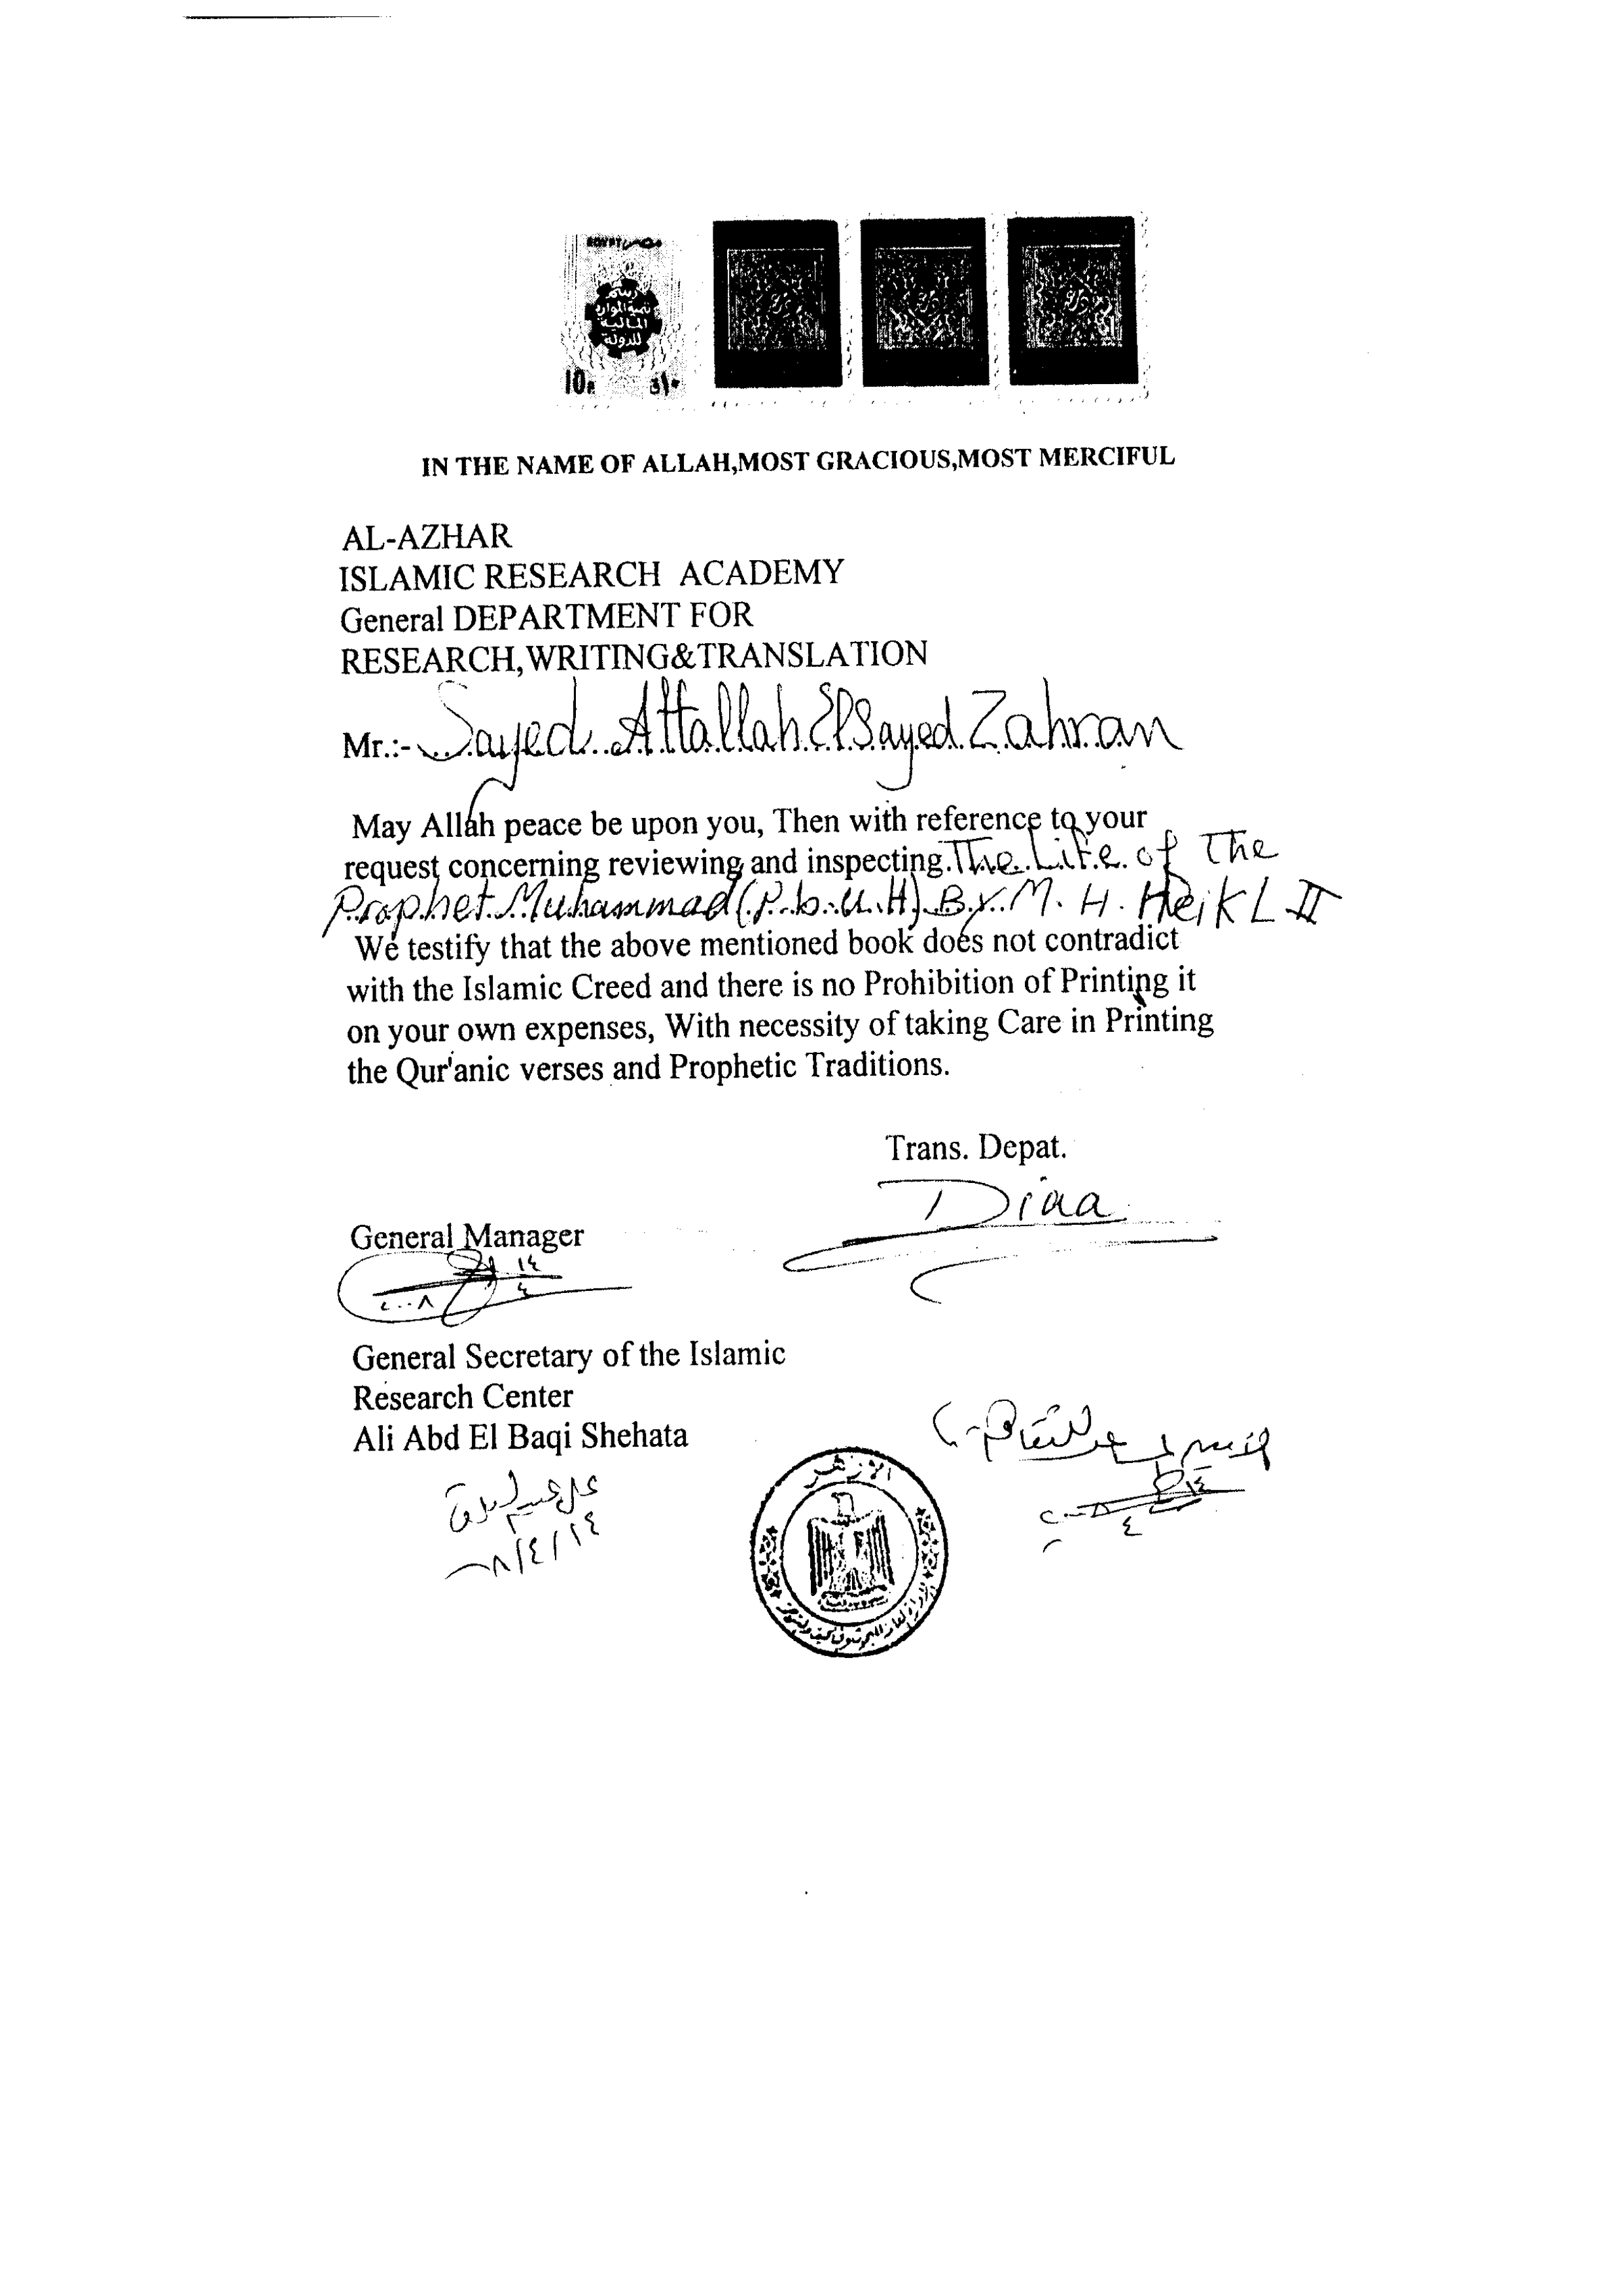 EGYPT مصر
رسم
تنمية الموارد
المالية
للدولة
10P ق١٠
IN THE NAME OF ALLAH,MOST GRACIOUS,MOST MERCIFUL
AL-AZHAR
ISLAMIC RESEARCH ACADEMY
General DEPARTMENT FOR
RESEARCH,WRITING&TRANSLATION
Mr.:- Sayed Attallah ElSayed Zahran
May Allah peace be upon you, Then with reference to your
request concerning reviewing and inspecting. The Life of The
Prophet Muhammad (P.b.u.H) By M. H. HeikL II
We testify that the above mentioned book does not contradict
with the Islamic Creed and there is no Prohibition of Printing it
on your own expenses, With necessity of taking Care in Printing
the Qur'anic verses and Prophetic Traditions.
Trans. Depat.
Diaa
General Manager
١٤
٤
٢٠٠٨
General Secretary of the Islamic
Research Center
Ali Abd El Baqi Shehata
على عبد الباقى
١٤/٤/٢٠٠٨
١٤
٤
الازهر